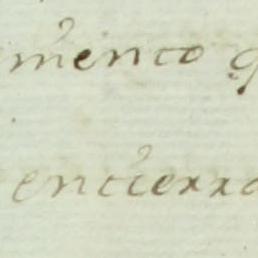 miento q
entierro